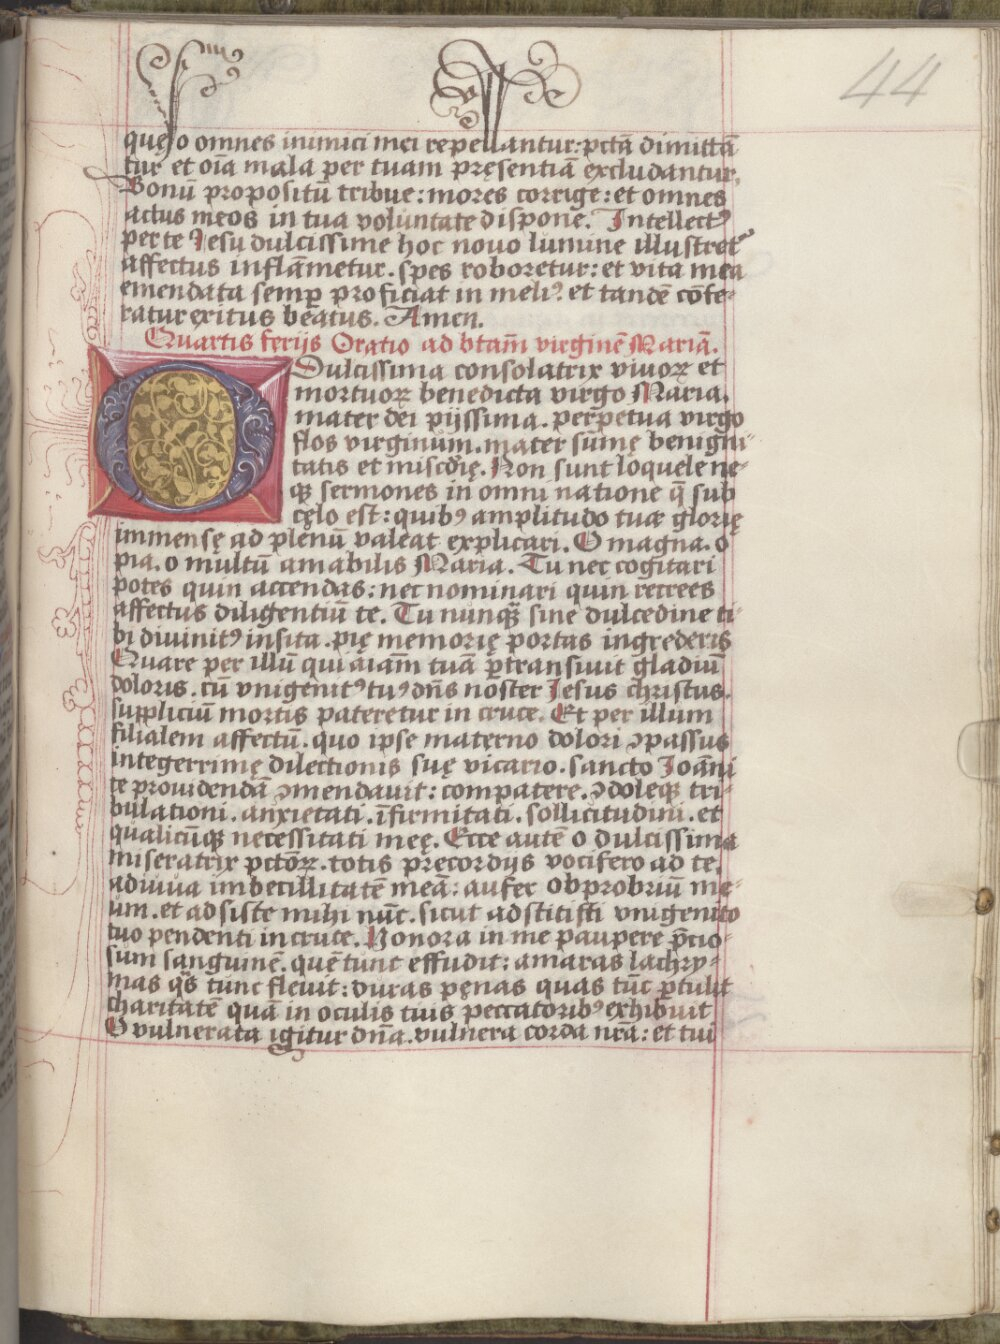 44
queso omnes inimici mei repellantur: pctā dimittā
tur et oīa mala per tuam pręsentiā excludantur.
Bonū propositū tribue: mores corrige: et omnes
actus meos in tua voluntate dispone. Intellectꝰ
per te Jesu dulcissime hoc nouo lumine illustretᷣ
affectus inflāmetur. spes roboretur: et vita mea
emendata semp̄ proficiat in meliꝰ. et tandē cōfe-
ratur exitus beatus. Amen.
Quartis ferijs Oratio ad btam̄ virginē Mariā.
O Dulcissima consolatrix viuoꝝ et
mortuoꝝ benedicta virgo Maria.
mater dei pijssima. perpetua virgo
flos virginum. mater sūmę benigni-
tatis et miscd̄ię. Non sunt loquele ne-
qꝫ sermones in omni natione q̄ sub
cęlo est: quibꝰ amplitudo tuæ glorię
immensę ad plenū valeat explicari. O magna. o
pia. o multū amabilis Maria. Tu nec cogitari
potes quin accendas: nec nominari quin recrees
affectus diligentiū te. Tu nunqꝫ sine dulcedine ti-
bi diuinitꝰ insita. pię memorię portas ingrederis
Quare per illū qui aīam̄ tuā ꝑtransiuit gladiū
doloris. cū vnigenitꝰ tuꝰ dn̄s noster Jesus christus.
suppliciū mortis pateretur in cruce. Et per illum
filialem affectū. quo ipse materno dolori ꝯpassus
integerrimę dilectionis suę vicario. sancto Joāni
te prouidendā ꝯmendauit: compatere. ꝯdoleqꝫ tri-
bulationi. anxietati. īfirmitati. sollicitudini. et
qualicūqꝫ necessitati meę. Ecce autē o dulcissima
miseratrix pctōꝝ. totis precordijs vocifero ad te.
adiuua imbecillitatē meā: aufer obprobriū me-
um. et adsiste mihi nūc. sicut adstitisti vnigenito
tuo pendenti in cruce. Honora in me paupere p̄cio-
sum sanguinē. quē tunc effudit: amaras lachry-
mas qs̄ tunc fleuit: duras pęnas quas tūc ꝑtulit
charitatē quā in oculis tuis peccatoribꝰ exhibuit
O vulnerata igitur dn̄a. vulnera corda nr̄a: et tui